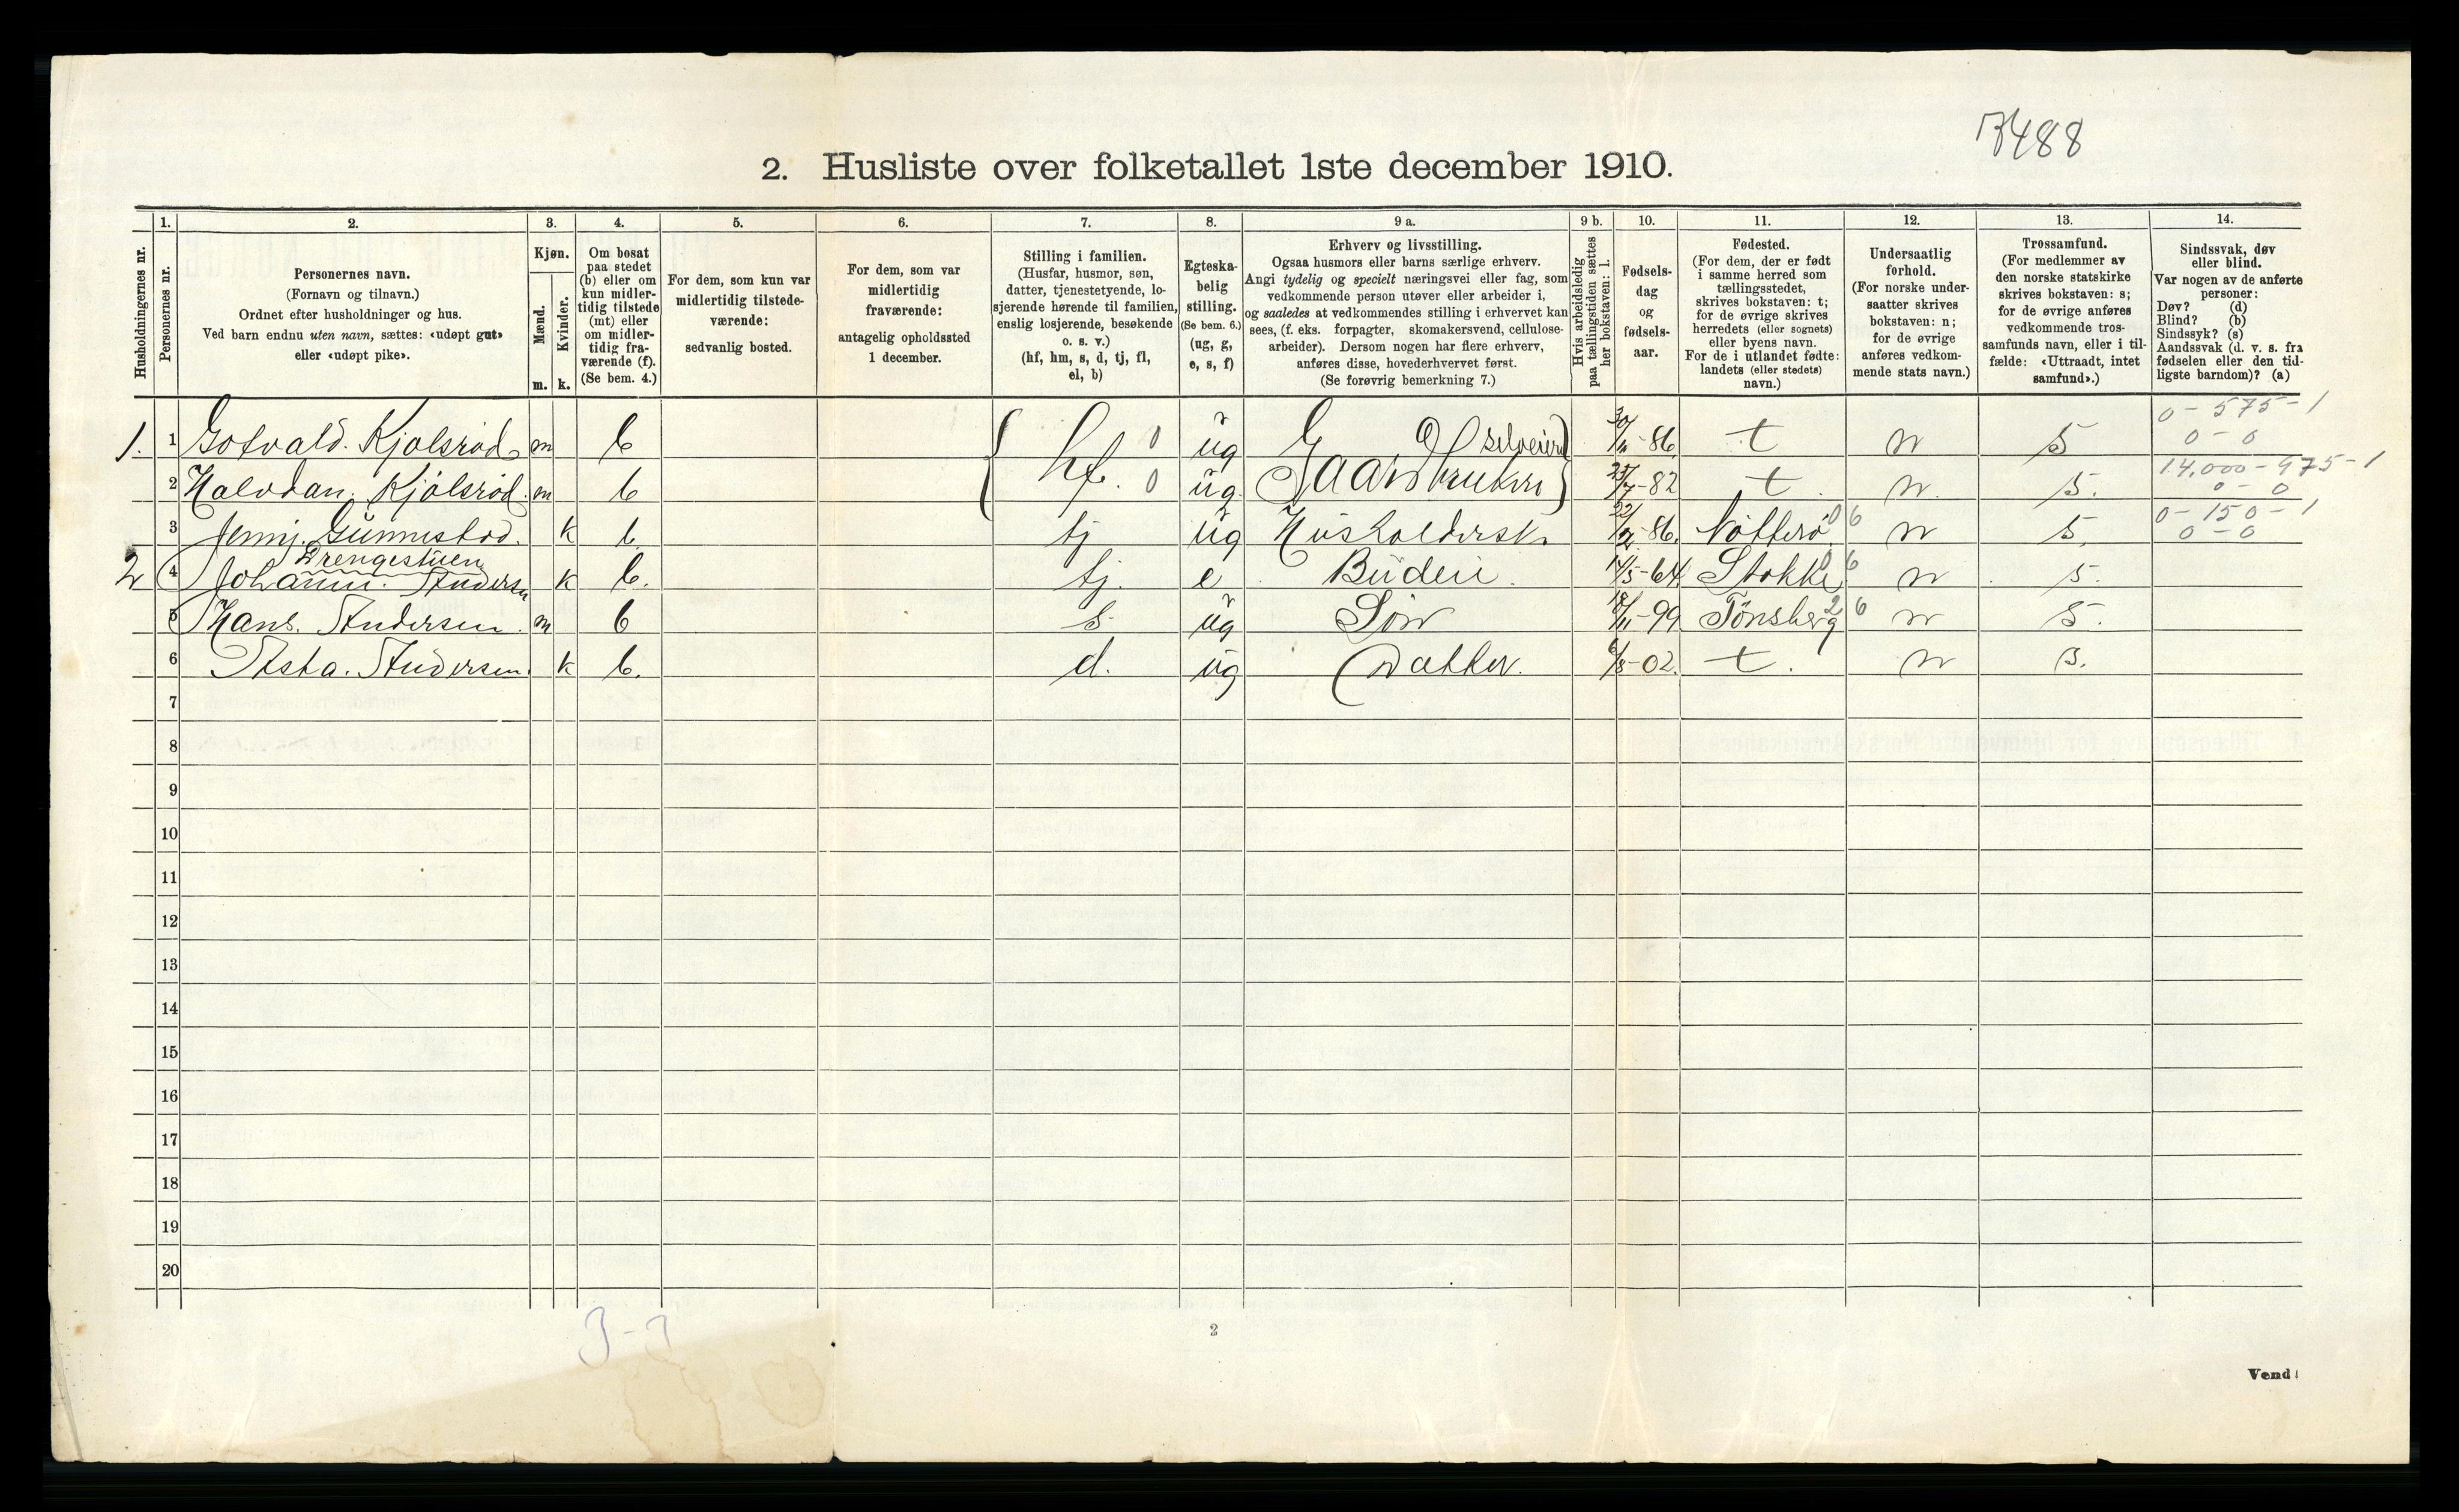 7488
2. Husliste over folketallet 1ste december 1910.
Husholdningernes nr.
1.
Personernes nr.
2.
Personernes navn.
(Fornavn og tilnavn.)
Ordnet efter husholdninger og hus.
Ved barn endnu uten navn, sættes: «udøpt gut»
eller «udøpt pike».
3.
Kjøn.
Mænd.
Kvinder.
m. k.
4.
Om bosat
paa stedet
(b) eller om
kun midler-
tidig tilstede
(mt) eller
om midler-
tidig fra-
værende (f).
(Se bem. 4.)
5.
For dem, som kun var
midlertidig tilstede-
værende:
sedvanlig bosted.
6.
For dem, som var
midlertidig
fraværende:
antagelig opholdssted
1 december.
7.
Stilling i familien.
(Husfar, husmor, søn,
datter, tjenestetyende, lo-
sjerende hørende til familien,
enslig losjerende, besøkende
o. s. v.)
(hf, hm, s, d, tj, fl,
el, b)
8.
Egteska-
belig
stilling.
(Se bem. 6.)
(ug, g,
e, s, f)
9 a.
Erhverv og livsstilling.
Ogsaa husmors eller barns særlige erhverv.
Angi tydelig og specielt næringsvei eller fag, som
vedkommende person utøver eller arbeider i,
og saaledes at vedkommendes stilling i erhvervet kan
sees, (f. eks. forpagter, skomakersvend, cellulose-
arbeider). Dersom nogen har flere erhverv,
anføres disse, hovederhvervet først.
(Se forøvrig bemerkning 7.)
9 b.
Hvis arbeidsledig
paa tællingstiden sættes
her bokstaven: l.
10.
Fødsels-
dag
og
fødsels-
aar.
11.
Fødested.
(For dem, der er født
i samme herred som
tællingsstedet,
skrives bokstaven: t;
for de øvrige skrives
herredets (eller sognets)
eller byens navn.
For de i utlandet fødte:
landets (eller stedets)
navn.)
12.
Undersaatlig
forhold.
(For norske under-
saatter skrives
bokstaven: n;
for de øvrige
anføres vedkom-
mende stats navn.)
13.
Trossamfund.
(For medlemmer av
den norske statskirke
skrives bokstaven: s;
for de øvrige anføres
vedkommende tros-
samfunds navn, eller i til-
fælde: «Uttraadt, intet
samfund».)
14.
Sindssvak, døv
eller blind.
Var nogen av de anførte
personer:
Døv? (d)
Blind? (b)
Sindssyk? (s)
Aandssvak (d. v. s. fra
fødselen eller den tid-
ligste barndom)? (a)
1. 1 Gotvald. Kjølsrød m b hf. 0 ug selveier 30/11-86 t n s 0 - 575 - 1 0 - 0
2 Halvdan. Kjølsrød. m b 0 ug. Gaardbruker 25/7-82 t. n. s. 14,000 - 975 - 1 0 - 0
3 Jenny. Gunnestad. k b tj ug Husholderske 22/2-86. Nøtterø 06 n s. 0 - 150 - 1 0 - 0
Drengestuen
2 4 Johanne. Andersen k b. tj. e Budeie. 14/5-64. Stokke 06 n s.
5 Hans. Andersen. m b s ug Søn 18/11-99 Tönsberg 26 n s.
6 Asta. Andersen. k b. d. ug Datter. 6/8-02. t. n s.
7
8
9
10
11
12
13
14
15
16
17
18
19
20
3-3
2
Vend!